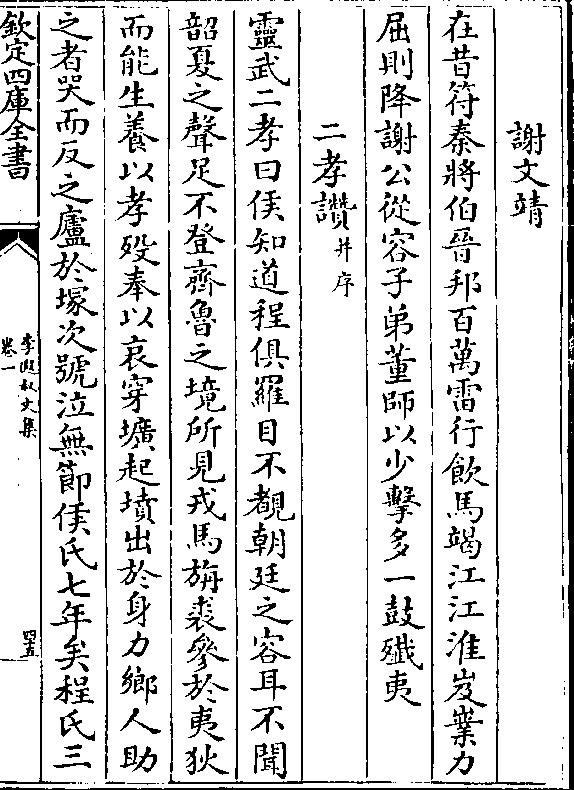 謝文靖
在昔符秦將伯晉邦百萬雷行飲馬竭江江淮岌嶪力
屈則降謝公從容子弟董師以少擊多一鼓殲夷
二孝讚并序
靈武二孝曰侯知道程俱羅目不覩朝廷之容耳不聞
韶夏之聲足不登齊魯之境所見戎馬旃裘參於夷狄
而能生養以孝歿奉以哀穿壙起墳出於身力鄉人助
之者哭而反之廬於塚次號泣無節侯氏七年矣程氏三
欽定四庫全書
李遐叔文集
卷一
四五